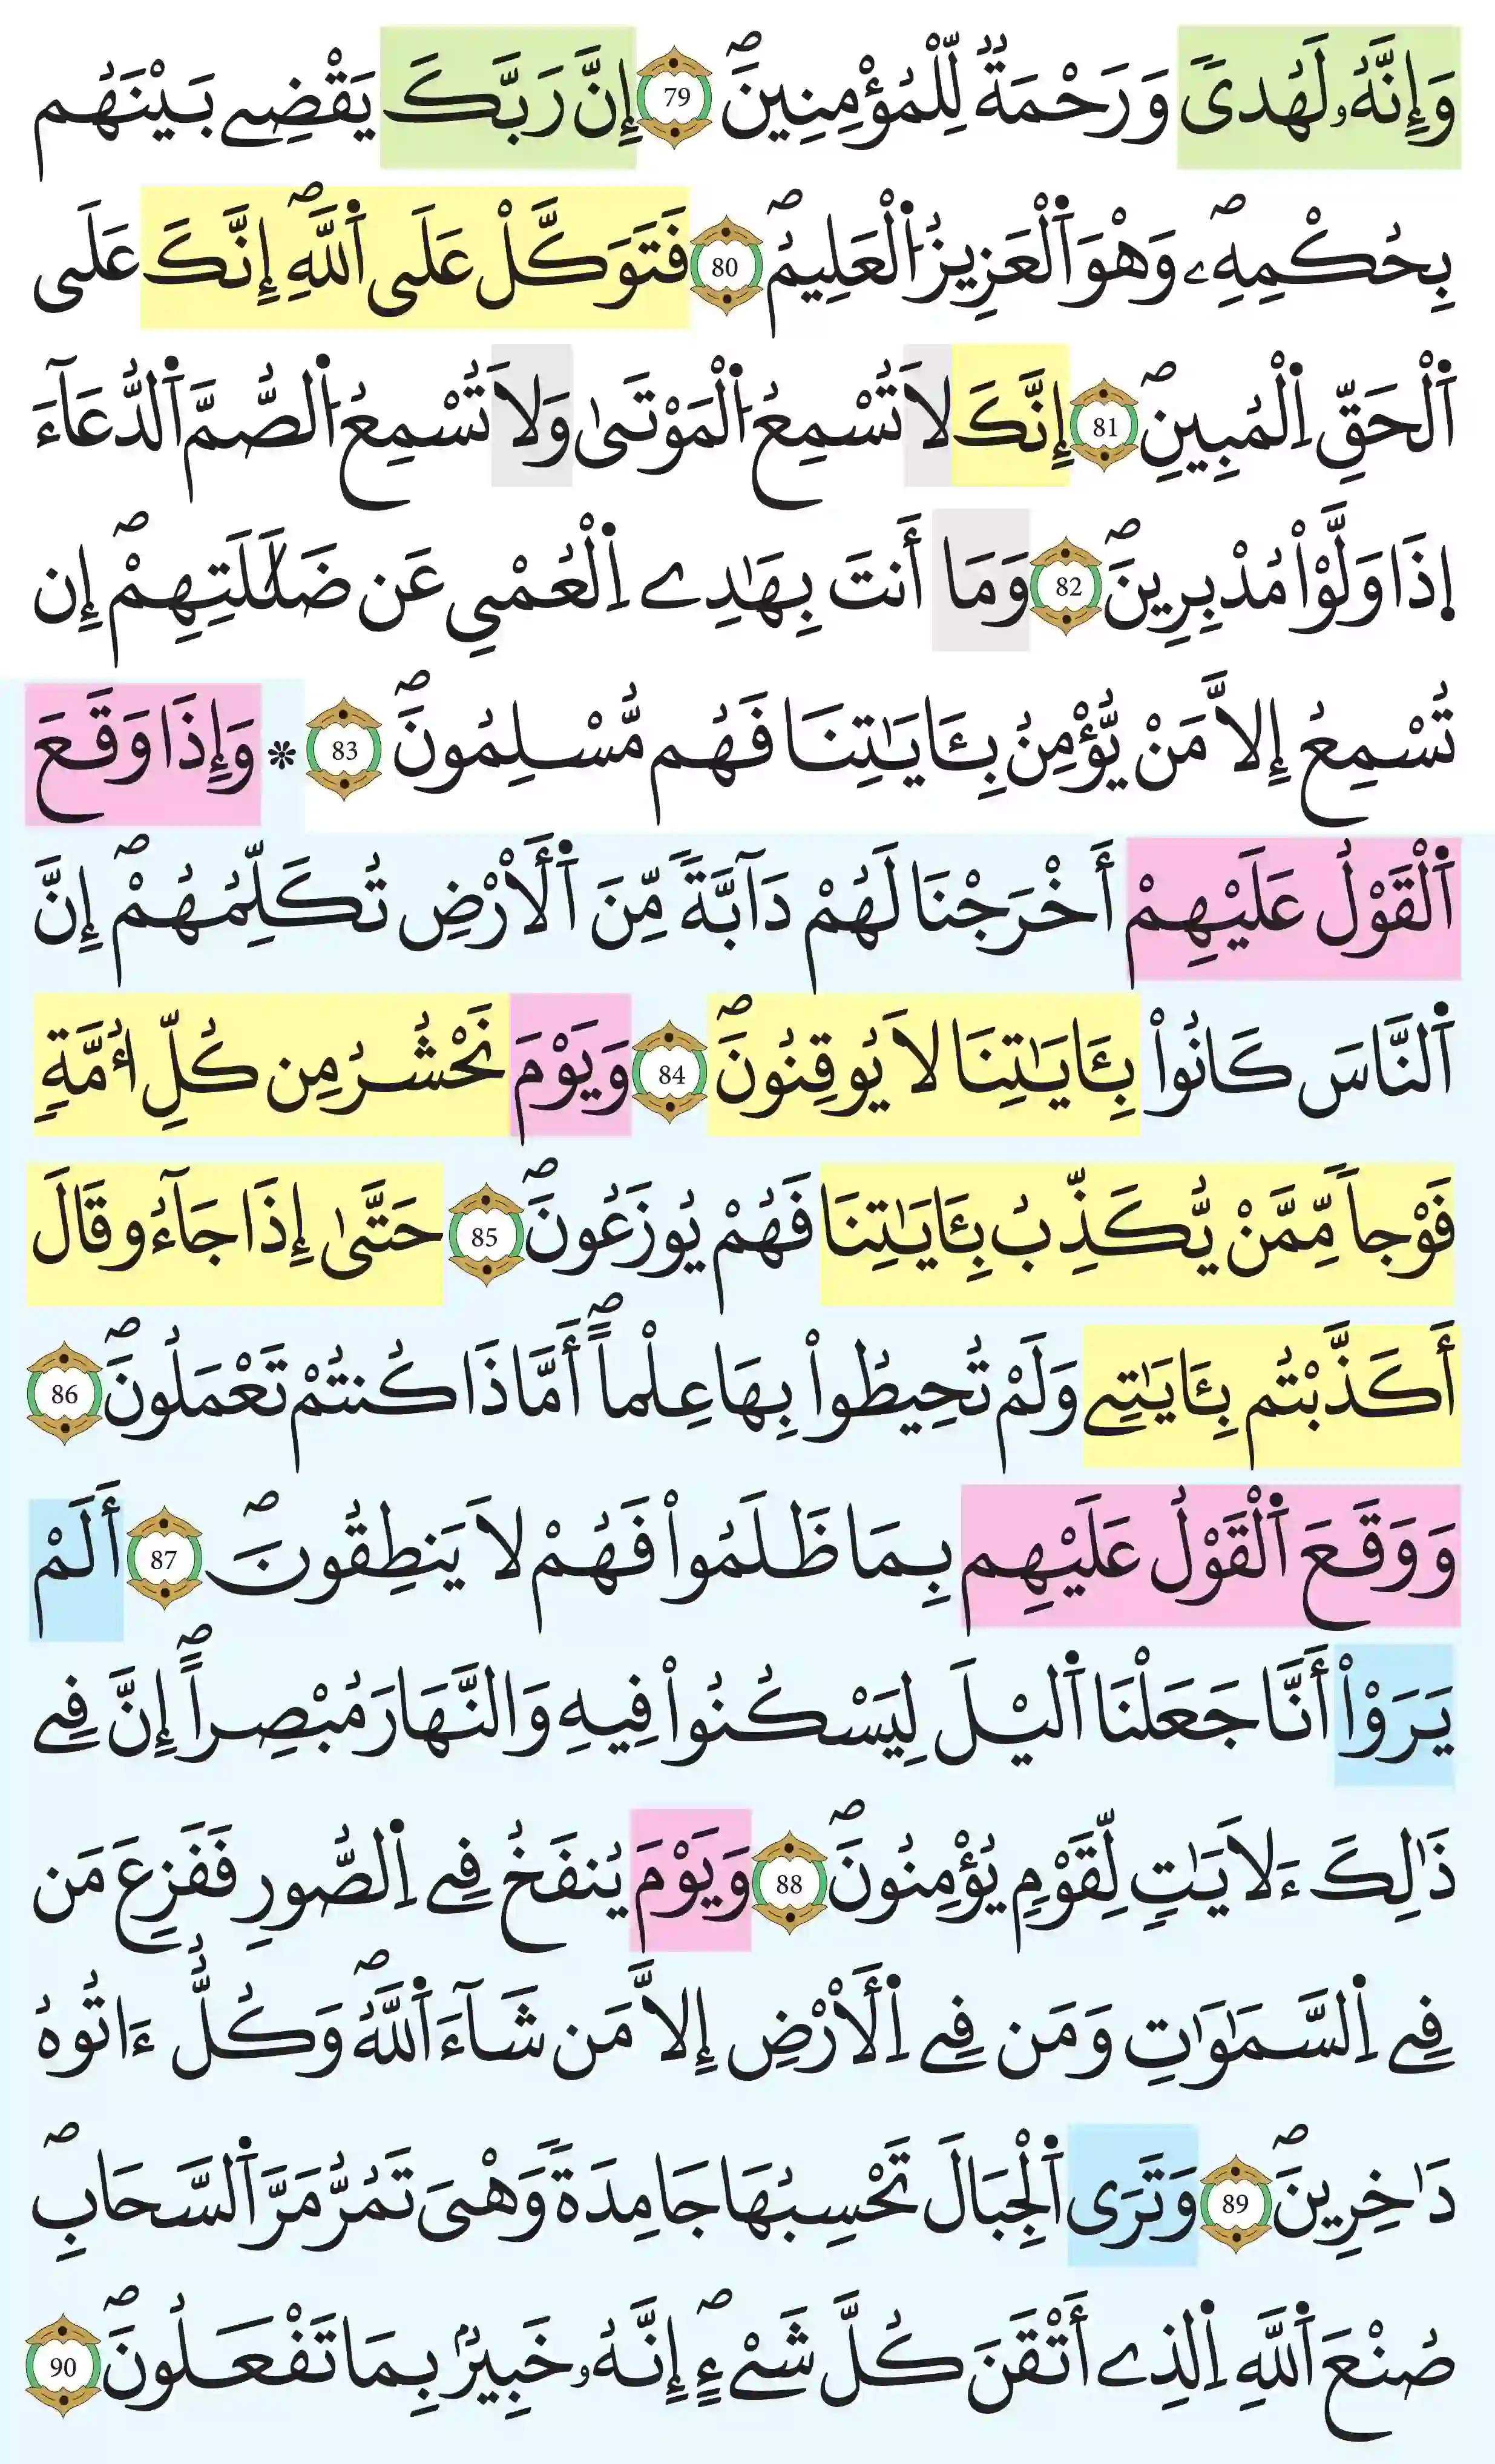 وَإِنَّهُۥ لَهُدىٗ وَرَحْمَةٞ لِّلْمُؤْمِنِينَۖ 79 إِنَّ رَبَّكَ يَقْضِے بَيْنَهُم
بِحُكْمِهِۦۖ وَهْوَ اَ۬لْعَزِيزُ اُ۬لْعَلِيمُۖ 80 فَتَوَكَّلْ عَلَى اَ۬للَّهِۖ إِنَّكَ عَلَى
اَ۬لْحَقِّ اِ۬لْمُبِينِۖ 81 إِنَّكَ لَا تُسْمِعُ اُ۬لْمَوْتَىٰ وَلَا تُسْمِعُ اُ۬لصُّمَّ اَ۬لدُّعَآءَ
اِ۪ذَا وَلَّوْاْ مُدْبِرِينَۖ 82 وَمَا أَنتَ بِهَٰدِے اِ۬لْعُمْيِ عَن ضَلَٰلَتِهِمْۖ إِن
تُسْمِعُ إِلَّا مَنْ يُّؤْمِنُ بِـَٔايَٰتِنَا فَهُم مُّسْلِمُونَۖ 83 * وَإِذَا وَقَعَ
اَ۬لْقَوْلُ عَلَيْهِمْ أَخْرَجْنَا لَهُمْ دَآبَّةٗ مِّنَ اَ۬لْأَرْضِ تُكَلِّمُهُمْۖ إِنَّ
اَ۬لنَّاسَ كَانُواْ بِـَٔايَٰتِنَا لَا يُوقِنُونَۖ 84 وَيَوْمَ نَحْشُرُ مِن كُلِّ أُمَّةٖ
فَوْجاٗ مِّمَّنْ يُّكَذِّبُ بِـَٔايَٰتِنَا فَهُمْ يُوزَعُونَۖ 85 حَتَّىٰ إِذَا جَآءُو قَالَ
أَكَذَّبْتُم بِـَٔايَٰتِے وَلَمْ تُحِيطُواْ بِهَا عِلْماًۖ أَمَّاذَا كُنتُمْ تَعْمَلُونَۖ 86
وَوَقَعَ اَ۬لْقَوْلُ عَلَيْهِم بِمَا ظَلَمُواْ فَهُمْ لَا يَنطِقُونَۖ 87 أَلَمْ
يَرَوْاْ أَنَّا جَعَلْنَا اَ۬ليْلَ لِيَسْكُنُواْ فِيهِ وَالنَّهَارَ مُبْصِراًۖ إِنَّ فِے
ذَٰلِكَ ءَلَايَٰتٖ لِّقَوْمٖ يُؤْمِنُونَۖ 88 وَيَوْمَ يُنفَخُ فِے اِ۬لصُّورِ فَفَزِعَ مَن
فِے اِ۬لسَّمَٰوَٰتِ وَمَن فِے اِ۬لْأَرْضِ إِلَّا مَن شَآءَ اَ۬للَّهُۖ وَكُلٌّ ءَاتُوهُ
دَٰخِرِينَۖ 89 وَتَرَى اَ۬لْجِبَالَ تَحْسِبُهَا جَامِدَةٗ وَهْيَ تَمُرُّ مَرَّ اَ۬لسَّحَابِۖ
صُنْعَ اَ۬للَّهِ اِ۬لذِے أَتْقَنَ كُلَّ شَےْءٍۖ إِنَّهُۥ خَبِيرُۢ بِمَا تَفْعَلُونَۖ 90